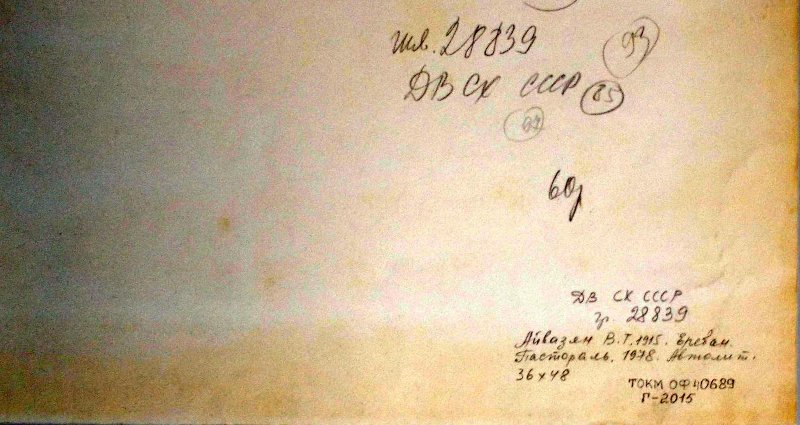 инв. 28839
93
ДВ СХ СССР
85
60р
ДВ СХ СССР
гр. 28839
Айвазян В.Т. 1915. Ереван.
Пастораль, 1978. Автолит.
36х48
ТОКМ ОФ 40689
Г-2015